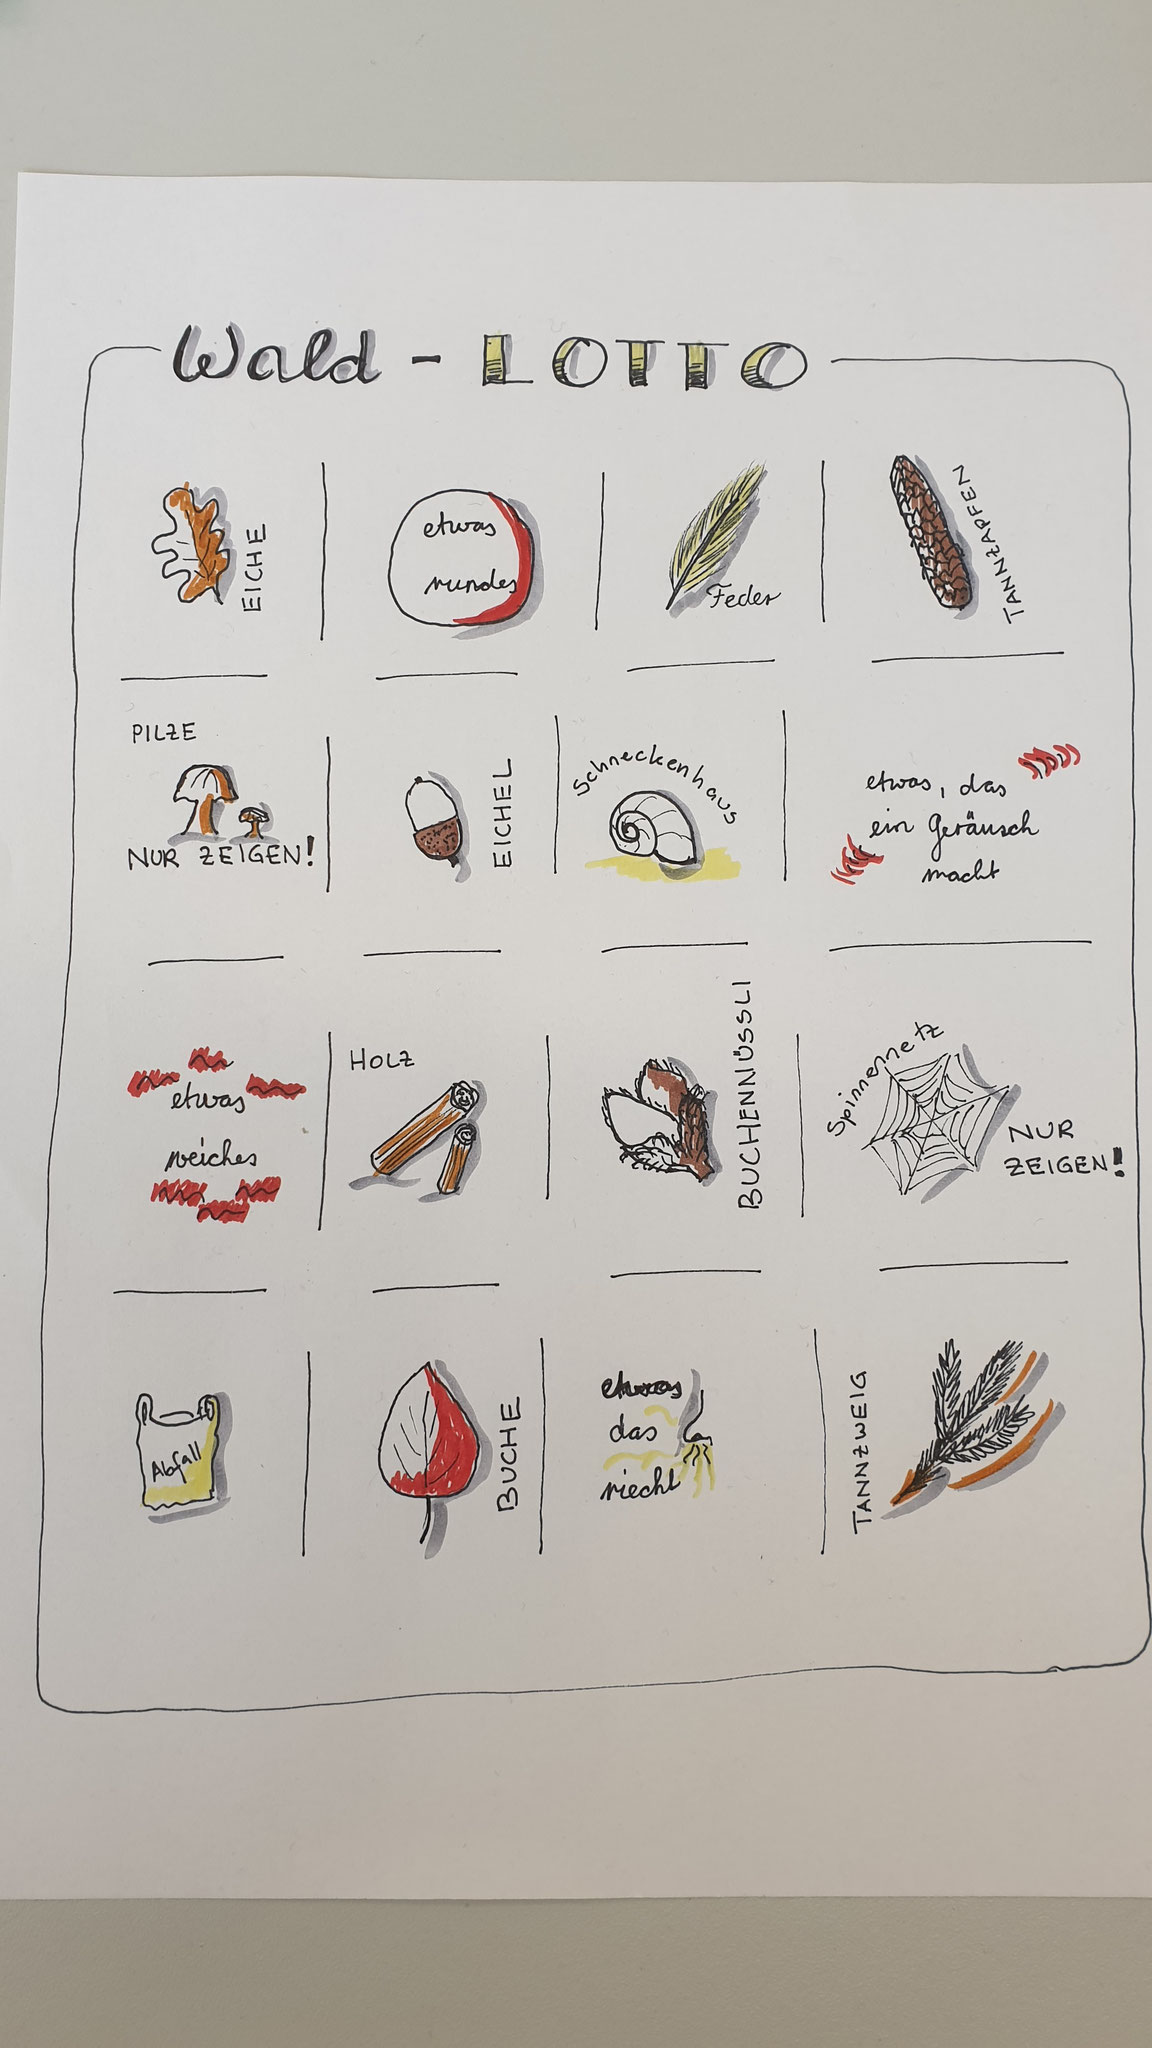 Wald - LOTTO
EICHE
etwas
rundes
Feder
TANNZAPFEN
PILZE
NUR ZEIGEN!
EICHEL
Schneckenhaus
etwas, das
ein Geräusch
macht
etwas
weiches
HOLZ
BUCHENNÜSSLI
Spinnennetz
NUR
ZEIGEN!
Abfall
BUCHE
etwas
das
riecht
TANNZWEIG